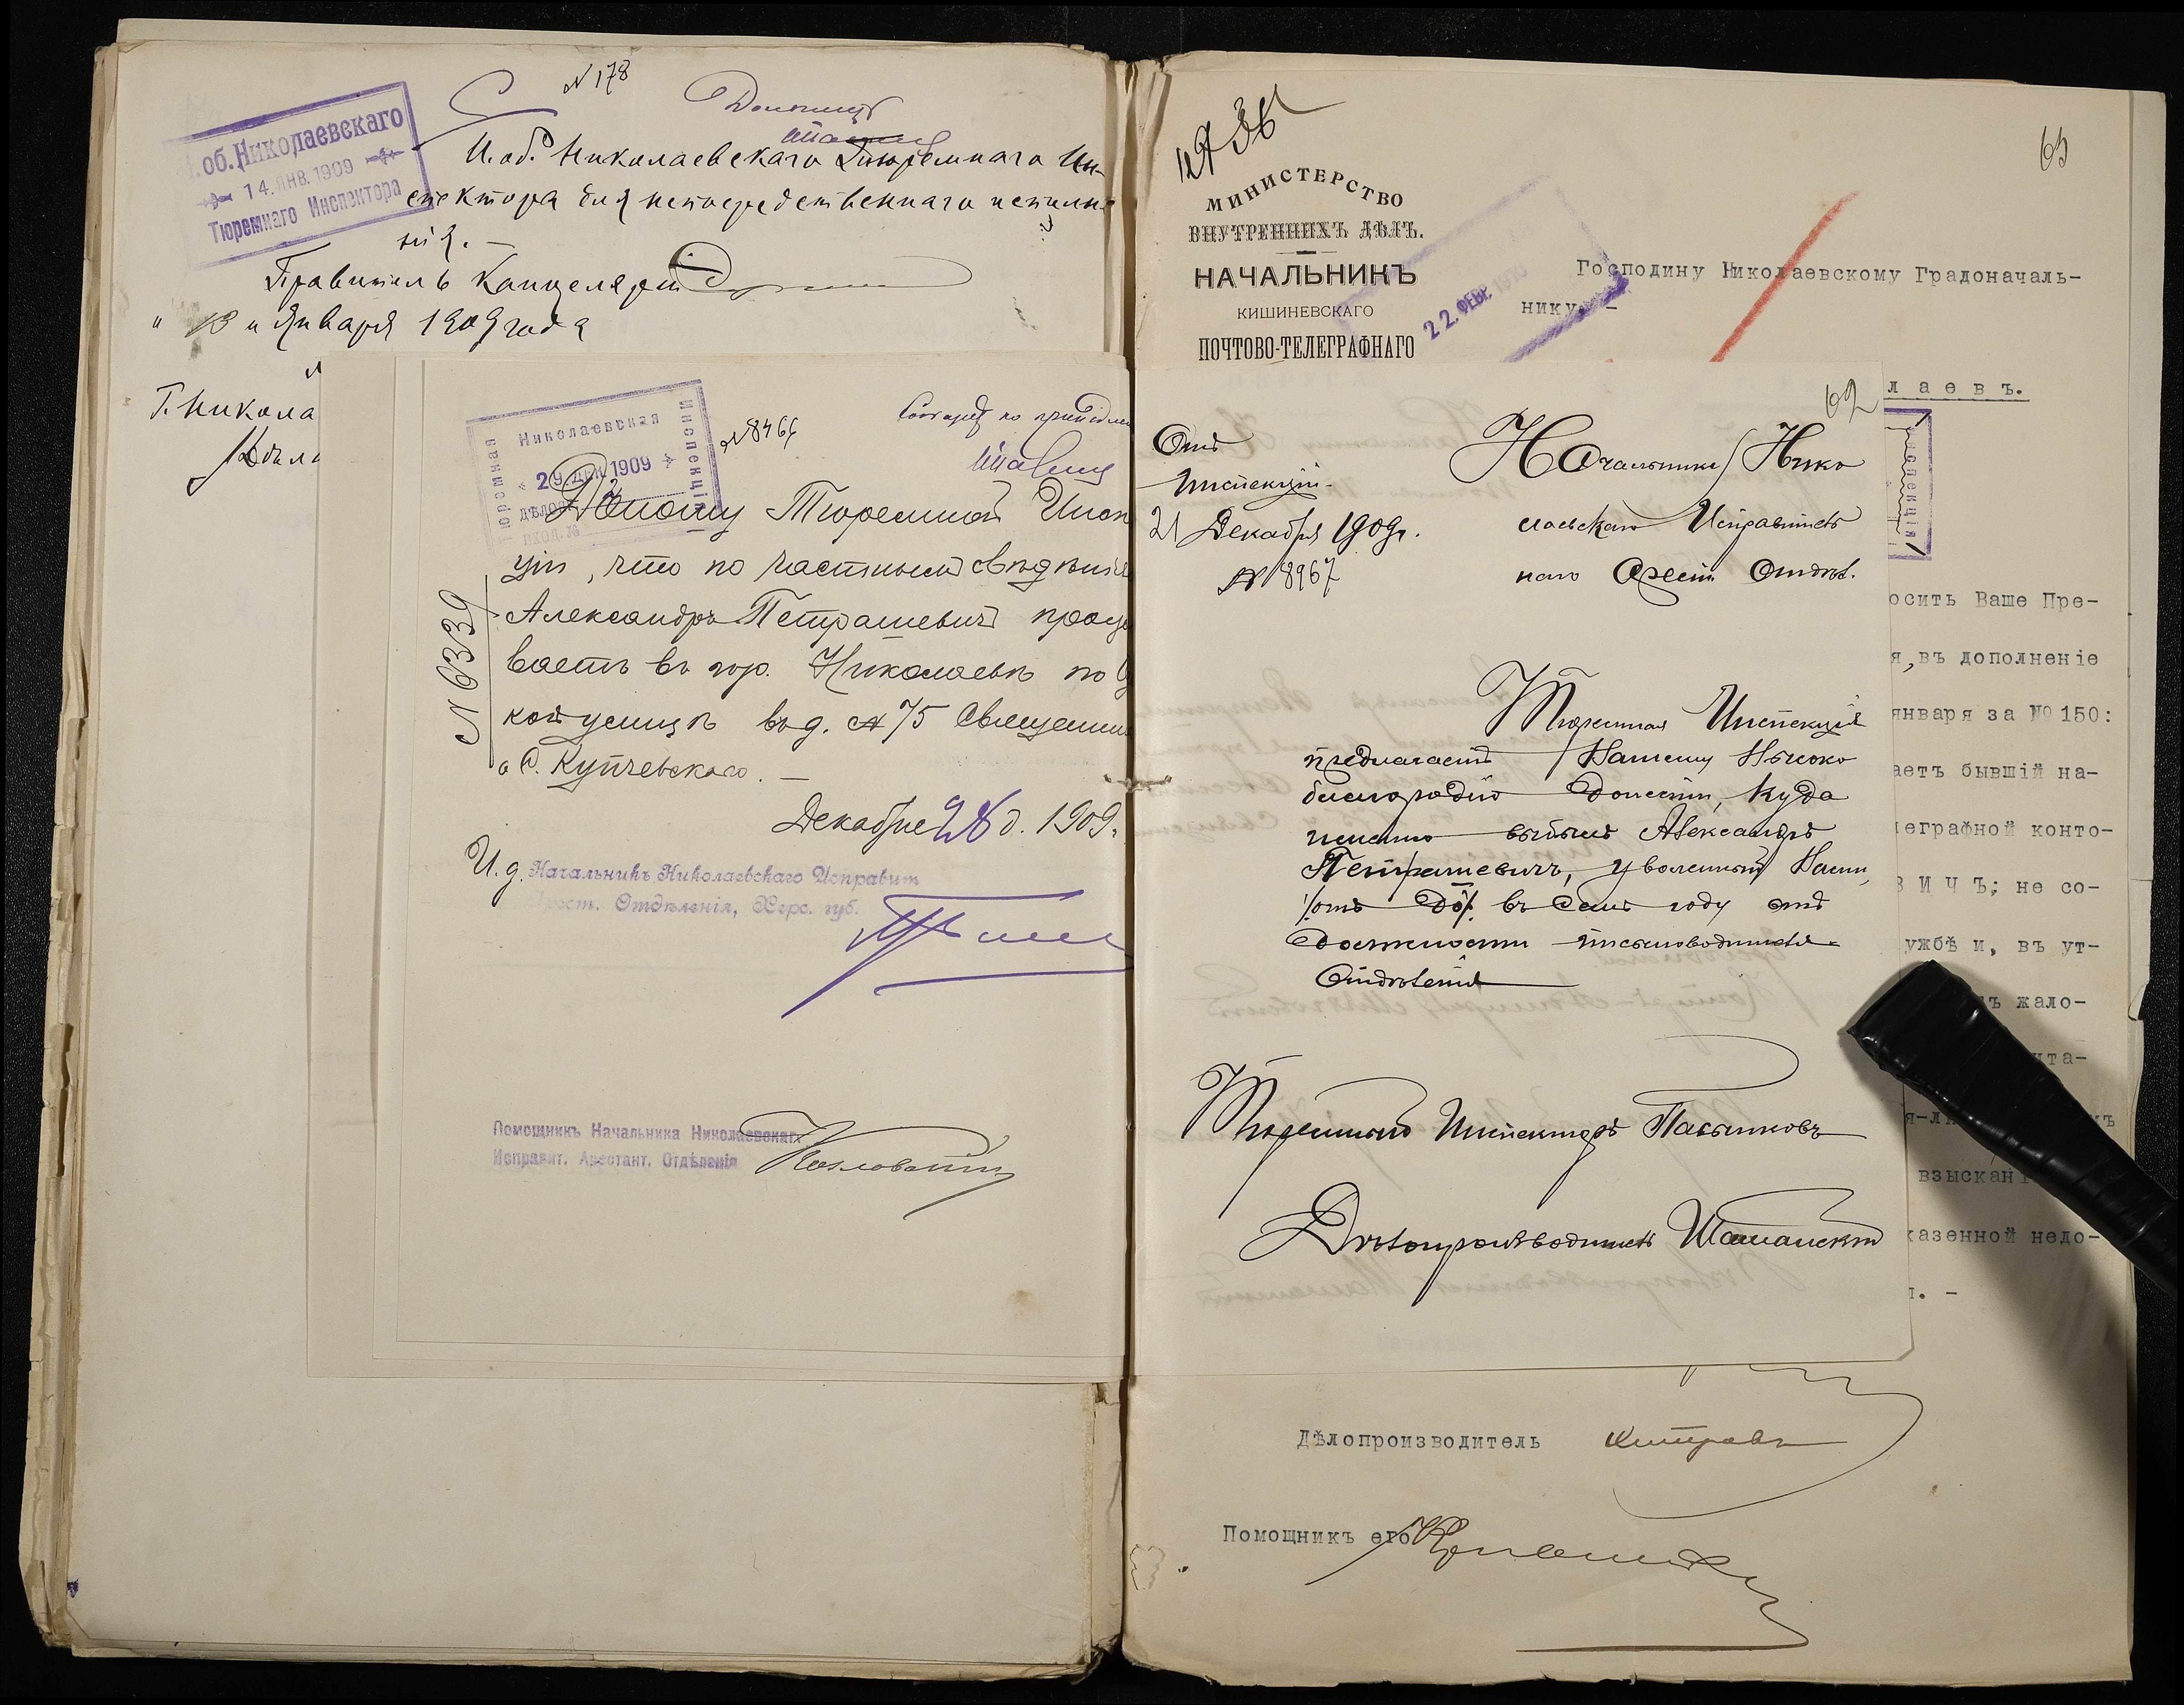 № 178
И. об. Николаевскаго
14. ЯНВ. 1909
Тюремнаго Инспектора
И. об. Николаевскаго Тюремнаго Ин-
спектора для непосредственнаго исполне
нія. —
Правитель Канцеляріи
" 13 " Января 1909 года
Г. Никола
Николаевская
Тюремная
Инспекція
29 ДЕК 1909
ВХОД. №
№ 8466
Доношу Тюремной Инспек
ціи, что по частнымъ свѣдѣнія
Александръ Петрашевичъ прожи
ваетъ въ гор. Николаевѣ по
кой улицѣ въ д. № 75 Священник
о С. Купчевскаго. —
№ 6339
Декабря 28 д. 1909.
И. д. Начальникъ Николаевскаго Исправит
Арест. Отдѣленія, Херс. губ.
Помощникъ Начальника Николаевскаго
Исправит. Арестант. Отдѣленія
65
МИНИСТЕРСТВО
ВНУТРЕННИХЪ ДѢЛЪ.
НАЧАЛЬНИКЪ
КИШИНЕВСКАГО
ПОЧТОВО-ТЕЛЕГРАФНАГО
22. ФЕВР. 1910
Господину Николаевскому Градоначаль-
нику. —
лаевъ.
62
Отд.
Инспекціи
21 Декабря 1909 г.
№ 8967
Начальнику Нико
лаевскаго Исправитель
наго Арест. Отдѣл.
Тюремная Инспекція
предлагаетъ Вашему Высоко
благородію донести, куда
именно выбылъ Александръ
Петрашевичъ, уволенный Вами,
въ семъ году отъ
должности письмоводителя
Отдѣленія
Тюремный Инспекторъ Пасынковъ
Дѣлопроизводитель Шаманскій
инспекція
осить Ваше Пре-
я, въ дополненіе
января за № 150:
аетъ бывшій на-
леграфной конто-
ВИЧЪ; не со-
ужбѣ и, въ ут-
ъ жало-
ита-
взыскані
казенной недо-
Дѣлопроизводитель
Помощникъ его